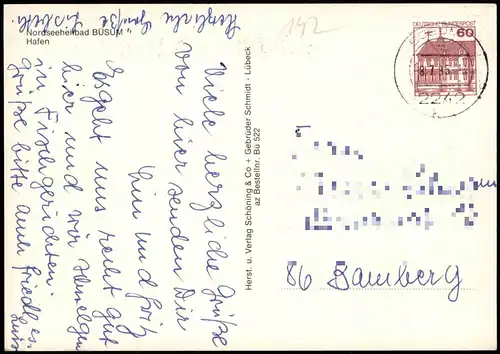 Nordseeheilbad BÜSUM
Hafen
Viele herzliche Grüße
von hier senden Dir
Lini und Fritz
Es geht uns recht gut
hier und wir schwelgen
in Fischgerichten.
Grüße bitte auch Friedl
Herzliche Grüße
Herst. u. Verlag Schöning & Co + Gebrüder Schmidt - Lübeck
az Bestellnr. Bü 522
142
DEUTSCHE BUNDESPOST
60
2242
86 Bamberg